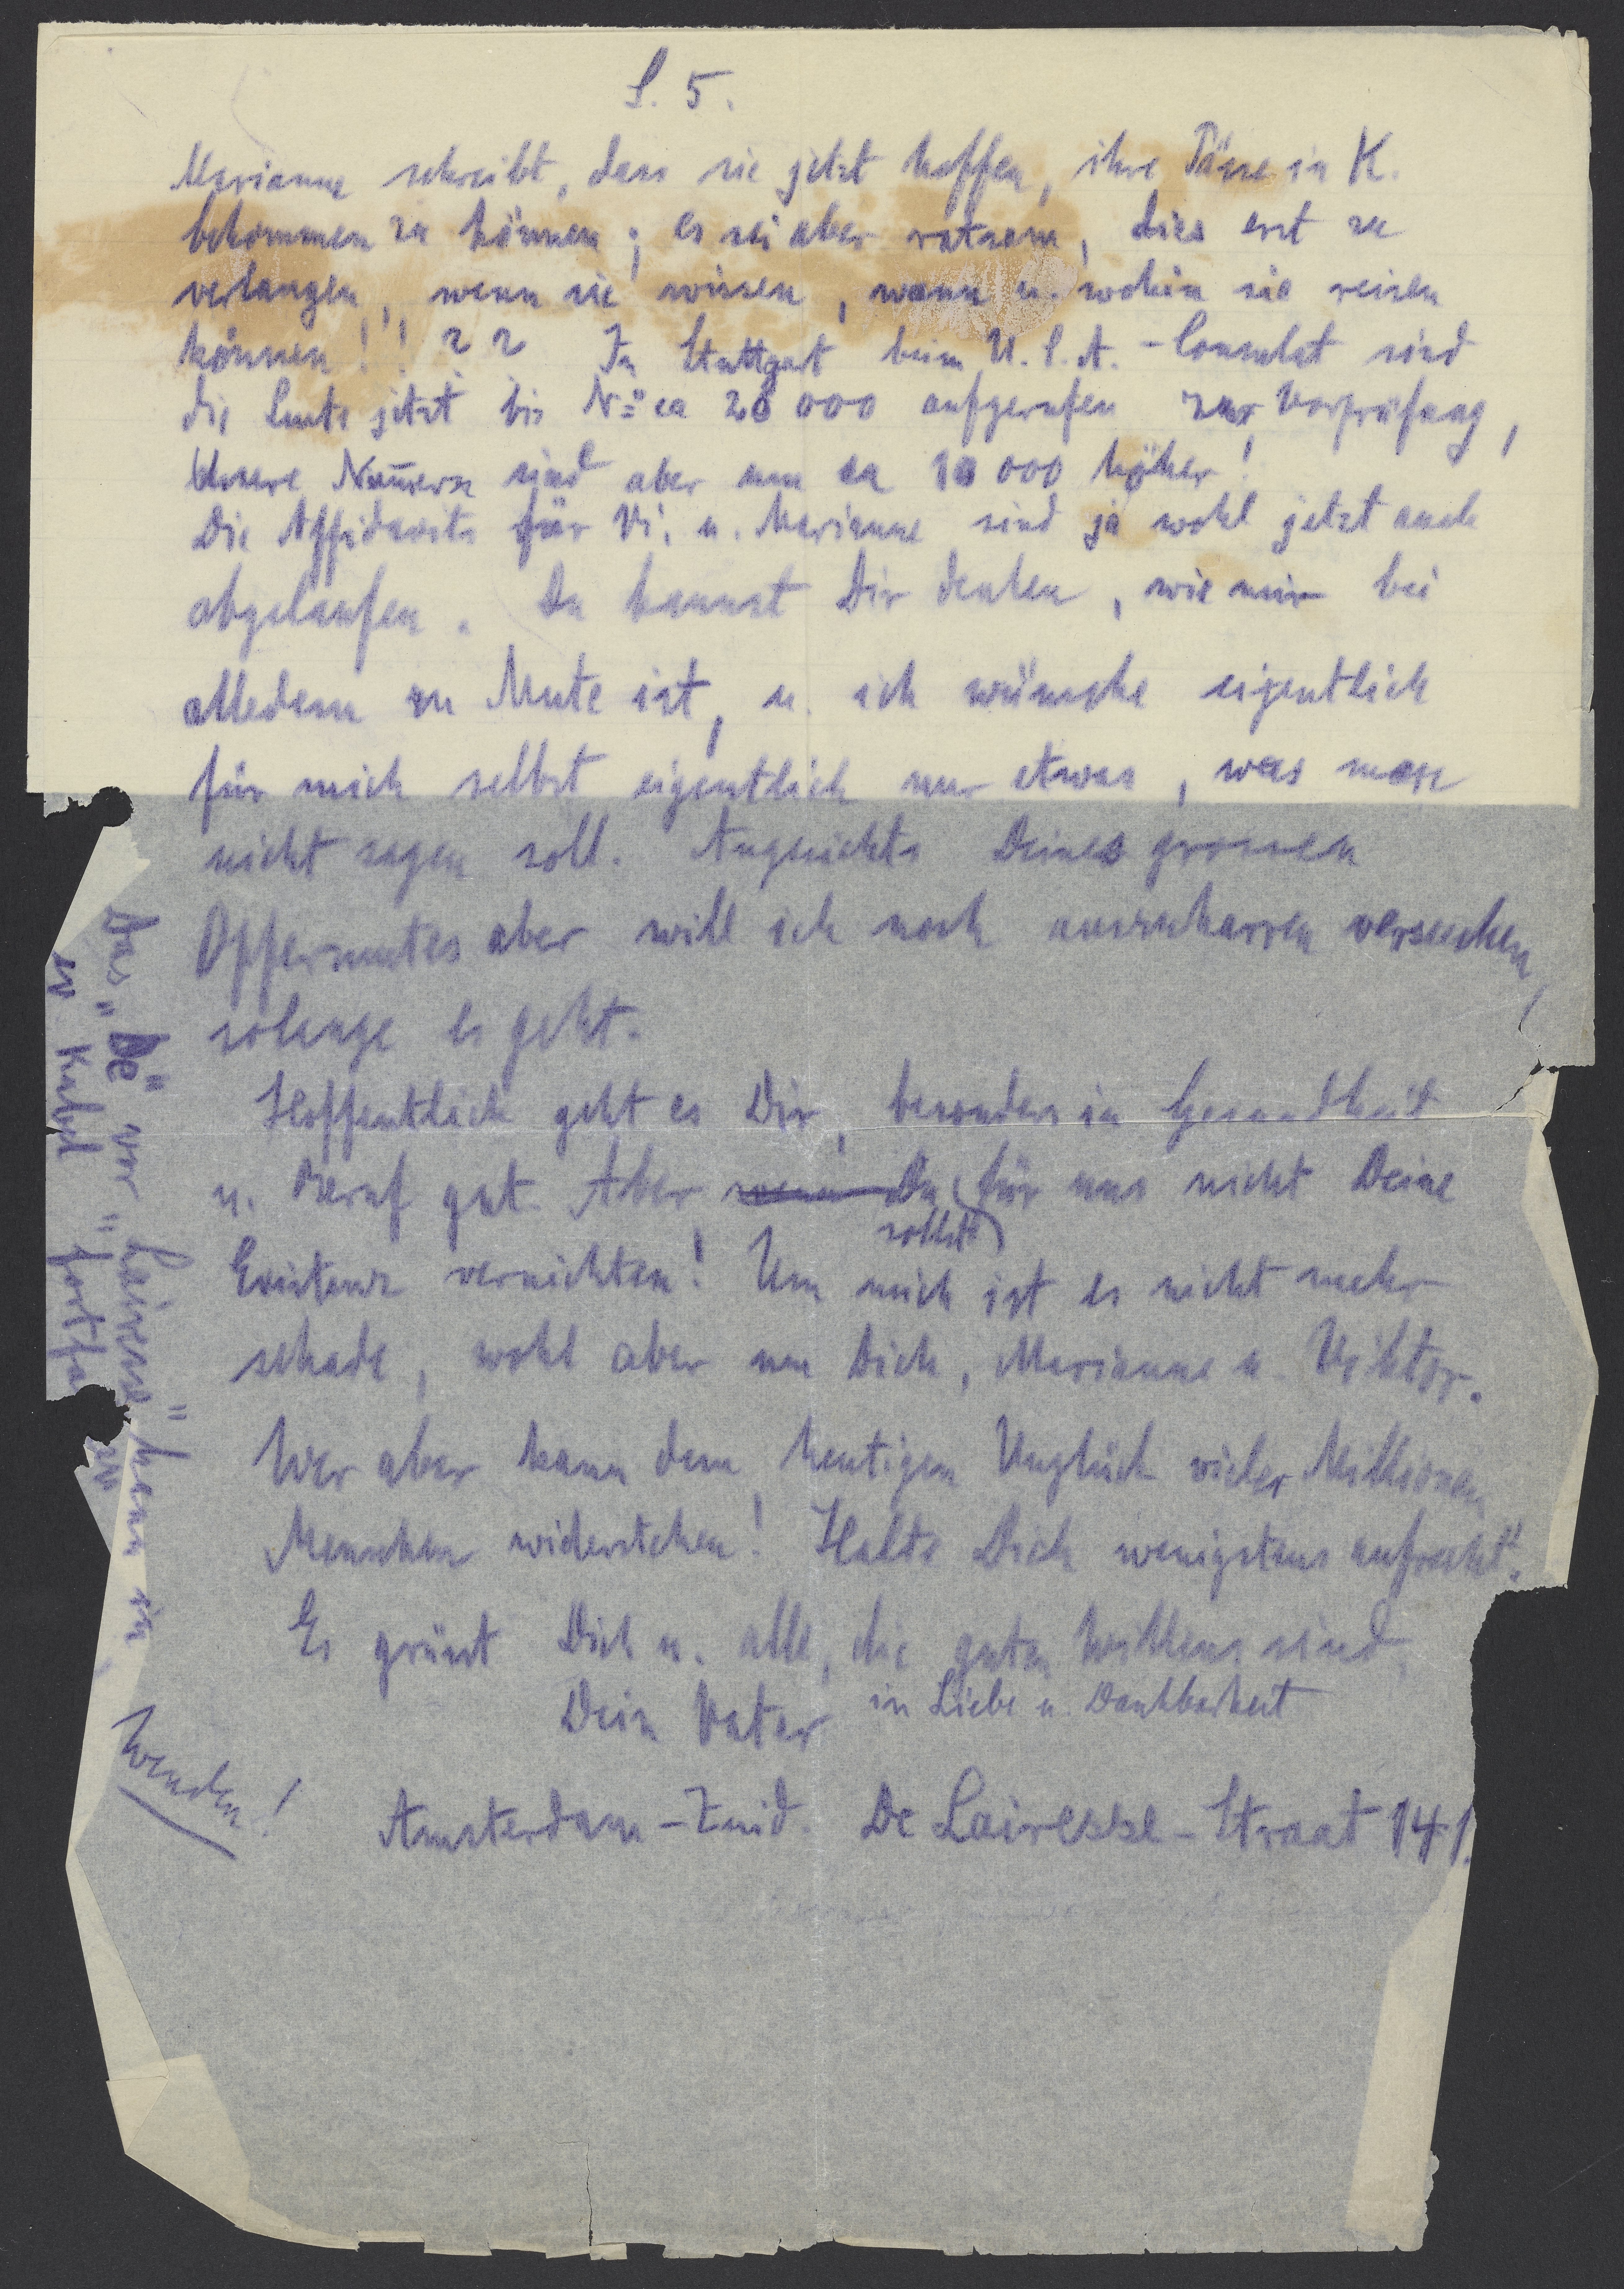 S. 5.
Marianne schreibt, dass sie jetzt hoffen, ihre Pässe in K.
bekommen zu können; es sei aber ratsam, dies erst zu
verlangen, wenn sie wissen, wann u. wohin sie reisen
können!!! ?? In Stuttgart beim U.S.A.-Consulat sind
die Leute jetzt bis No ca 20 000 aufgerufen zur Vorprüfung,
Unsere Num̄ern sind aber um ca 10 000 höher!
Die Affidavits für Vi. u. Marianne sind ja wohl jetzt auch
abgelaufen. Du kannst Dir denken, wie mir bei
alledem zu Mute ist, u. ich wünsche eigentlich
für mich selbst eigentlich nur etwas, was man
nicht sagen soll. Angesichts Deines grossen
Opfermutes aber will ich noch auszuharren versuchen,
solange es geht.
Hoffentlich geht es Dir, besonders in Gesundheit
u. Beruf gut. Aber wenn Du für uns nicht Deine
solltest
Existenz vernichten! Um mich ist es nicht mehr
schade, wohl aber um Dich, Marianne u. Viktor.
Wer aber kann dem heutigen Unglück vieler Millionen
Menschen widerstehen! Halte Dich wenigstens aufrecht!
Es grüsst Dich u. alle, die guten Willens sind,
Dein Vater in Liebe u. Dankbarkeit
Wenden!
Amsterdam-Zuid. De Lairesse-Straat 141.
Das "De" vor "Lairesse" kann in
Kabel fortfa